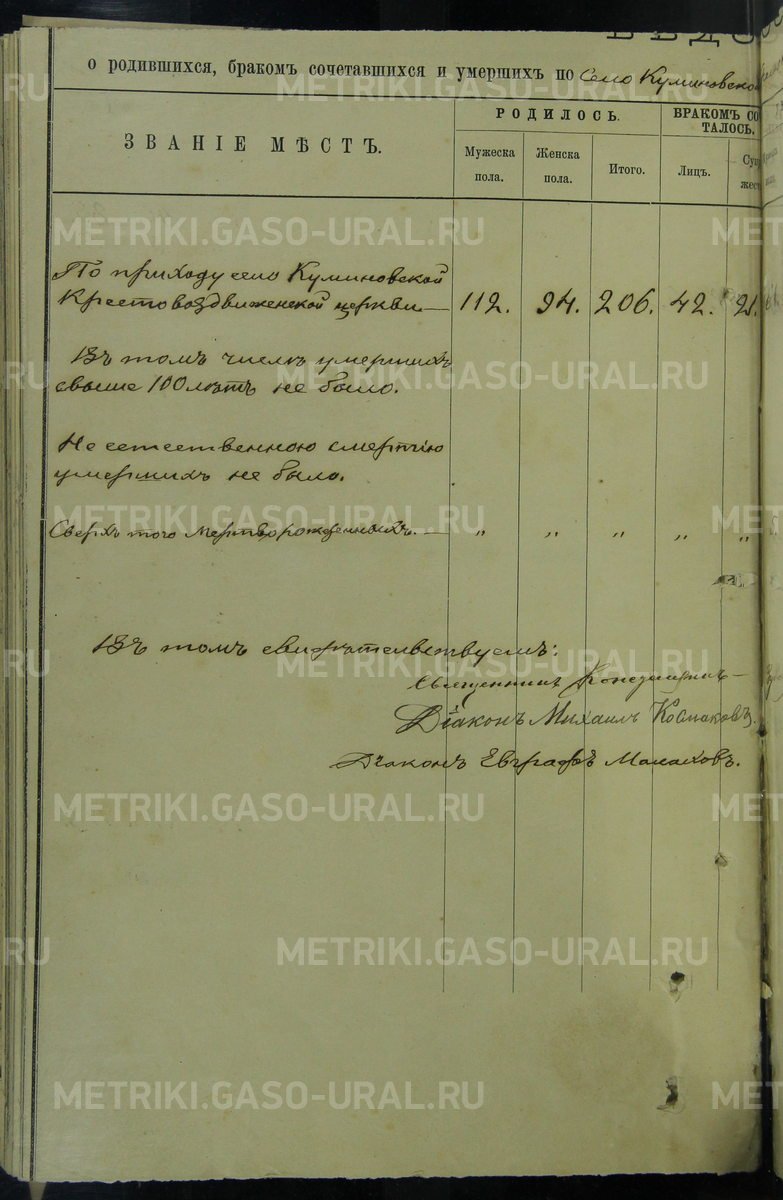 о родившихся, бракомъ сочетавшихся и умершихъ по Село Куминовской
ЗВАНІЕ МѢСТЪ.
РОДИЛОСЬ.
БРАКОМЪ СО
ТАЛОСЬ.
Мужеска
пола.
Женска
пола.
Итого.
Лицъ.
По приходу село Куминовской
Крестовоздвиженской церкви 112. 94. 206. 42. 21.
Въ томъ числѣ умершихъ
свыше 100 лѣтъ не было.
Не естественною смертію
умершихъ не было.
Сверхъ того мертворожденныхъ. — " " " " "
Въ томъ свидѣтельствуемъ:
Священникъ
Діаконъ Михаилъ Космаковъ
Діаконъ Евграфъ Малаховъ.
METRIKI.GASO-URAL.RU